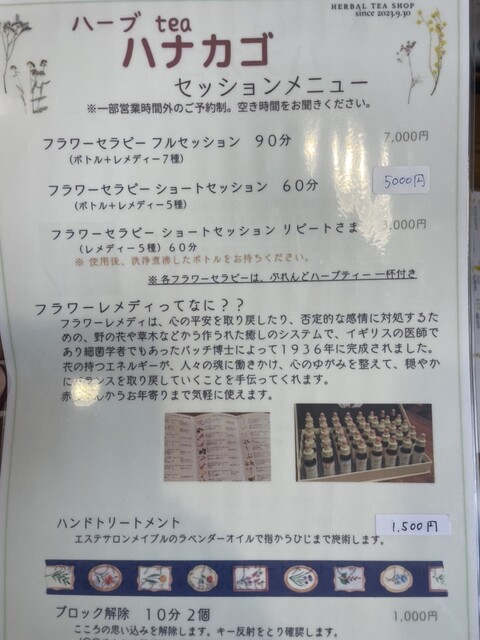 HERBAL TEA SHOP
since 2023.9.30
ハーブ tea
ハナカゴ
セッションメニュー
※一部営業時間外のご予約制。空き時間をお聞きください。
フラワーセラピー フルセッション 90分 7,000円
(ボトル+レメディー7種)
フラワーセラピー ショートセッション 60分 5000円
(ボトル+レメディー5種)
フラワーセラピー ショートセッション リピートさま ,000円
(レメディー5種) 60分
※ 使用後、洗浄煮沸したボトルをお持ちください。
※ 各フラワーセラピーは、ぶれんどハーブティー 一杯付き
フラワーレメディってなに??
フラワーレメディは、心の平安を取り戻したり、否定的な感情に対処するた
めの、野の花や草木などから作られた癒しのシステムで、イギリスの医師で
あり細菌学者でもあったバッチ博士によって1936年に完成されました。
花の持つエネルギーが、人々の魂に働きかけ、心のゆがみを整えて、穏やか
にバランスを取り戻していくことを手伝ってくれます。
赤 んからお年寄りまで気軽に使えます。
ハンドトリートメント 1,500円
エステサロンメイプルのラベンダーオイルで指からひじまで施術します。
ブロック解除 10分 2個 1,000円
こころの思い込みを解除します。キー反射をとり確認します。